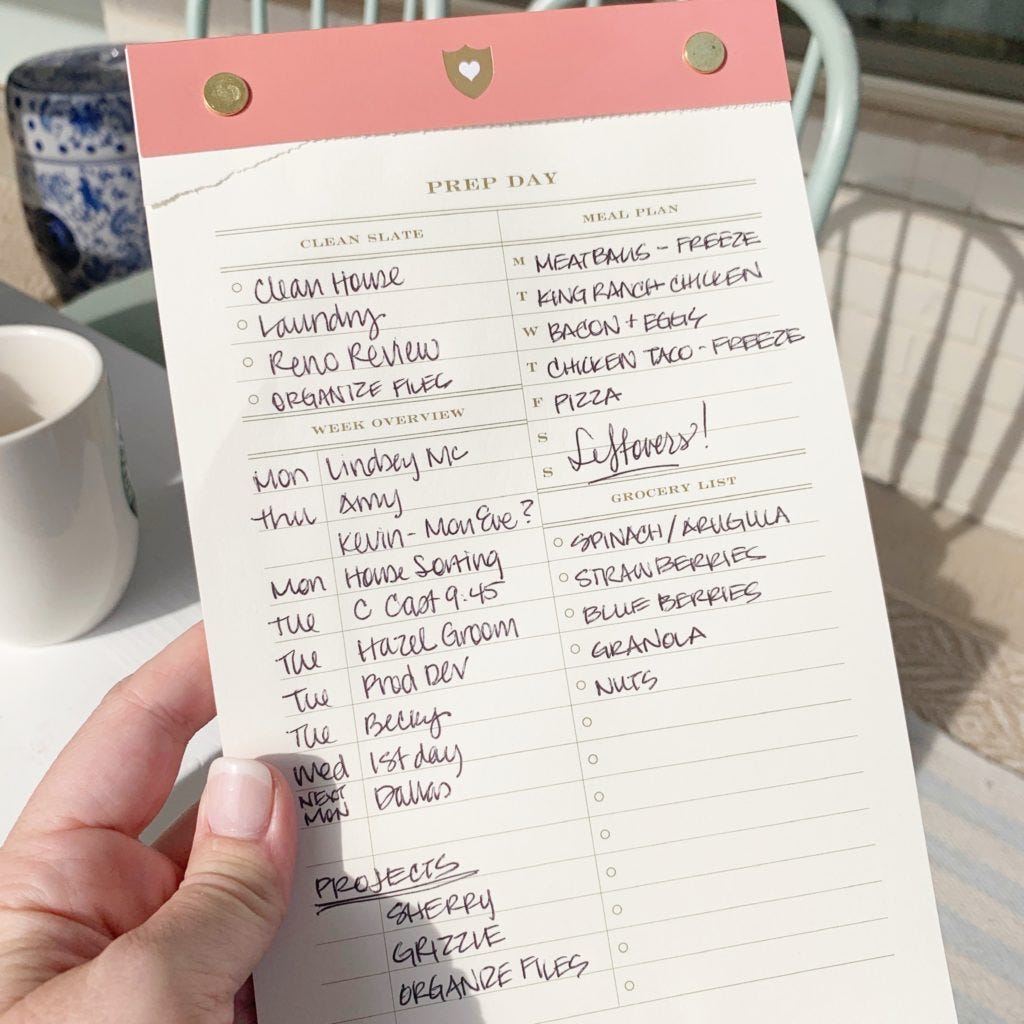 PREP DAY
CLEAN SLATE
Clean House
Laundry
Reno Review
ORGANIZE FILES
WEEK OVERVIEW
Mon Lindsey Mc
thu Amy
Kevin - Mon Eve?
Mon House Sorting
Tue C Cast 9:45
Tue Hazel Groom
Tue Prod Dev
Tue Becky
Wed 1st day
NEXT MON Dallas
PROJECTS
SHERRY
GRIZZLE
ORGANIZE FILES
MEAL PLAN
M MEATBALLS - FREEZE
T KING RANCH CHICKEN
W BACON + EGGS
T CHICKEN TACO - FREEZE
F PIZZA
S
S Leftovers!
GROCERY LIST
SPINACH / ARUGULA
STRAWBERRIES
BLUE BERRIES
GRANOLA
NUTS